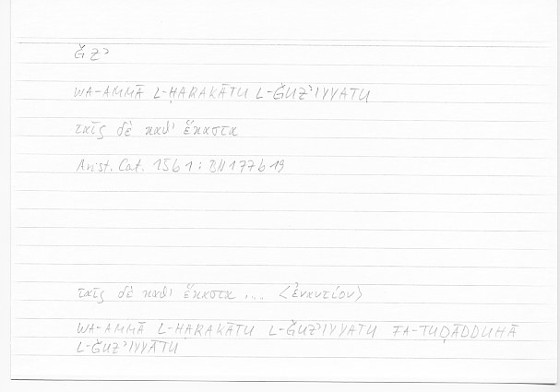 Ǧ Z ʾ
WA-AMMĀ L-ḤARAKĀTU L-ǦUZʾIYYATU
ταῖς δὲ καθ' ἕκαστα
Arist. Cat. 15b1 : 177b19
ταῖς δὲ καθ' ἕκαστα ... <ἐναντίον>
WA-AMMĀ L-ḤARAKĀTU L-ǦUZʾIYYATU FA-TUḌĀDDUHĀ
L-ǦUZʾIYYĀTU